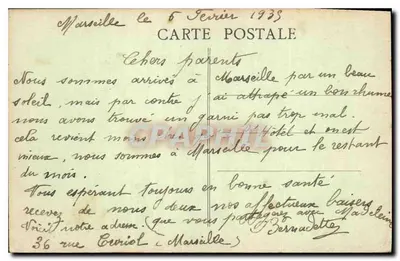 Marseille le 6 Fevrier 1935
CARTE POSTALE
Chers parents
Nous sommes arrivés à Marseille par un beau
soleil, mais par contre ai attrapé un bon rhume
nous avons trouvé un garni pas trop mal.
cela revient moins l'Hôtel et on est
mieux, nous sommes à Marseille pour le restant
du mois.
Vous espérant toujours en bonne santé
recevez de nous deux nos affectueux baisers
(que vous partagerez avec Madeleine
Voici notre adresse. Bernadette
36 rue (Marseille)